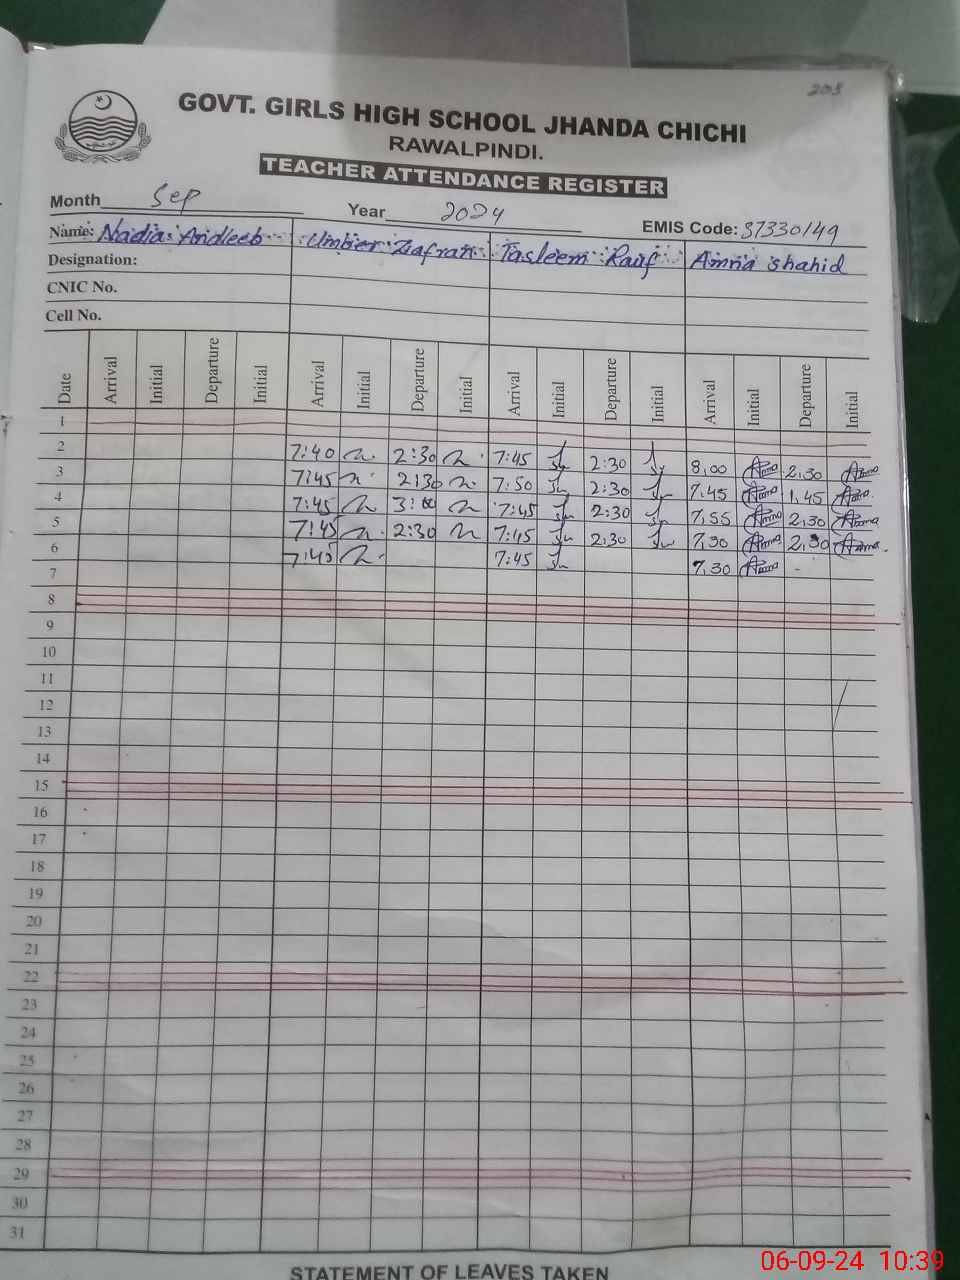 203
GOVT. GIRLS HIGH SCHOOL JHANDA CHICHI
RAWALPINDI.
TEACHER ATTENDANCE REGISTER
Month Sep Year 2024 EMIS Code: 37330149
Name: Nadia Andleeb Umber Zaafran Tasleem Rauf Amna Shahid
Designation:
CNIC No.
Cell No.
Date Arrival Initial Departure Initial Arrival Initial Departure Initial Arrival Initial Departure Initial Arrival Initial Departure Initial
1
2 7:40 2:30 7:45 2:30 8,00 Amna 2,30 Amna
3 7:45 2:30 7:50 2:30 7,45 Amna 1,45 Amna
4 7:45 3:00 7:45 2:30 7,55 Amna 2,30 Amna
5 7:45 2:30 7:45 2:30 7,30 Amna 2,30 Amna
6 7:45 7:45 7,30 Amna
7
8
9
10
11
12
13
14
15
16
17
18
19
20
21
22
23
24
25
26
27
28
29
30
31
STATEMENT OF LEAVES TAKEN
06-09-24 10:39